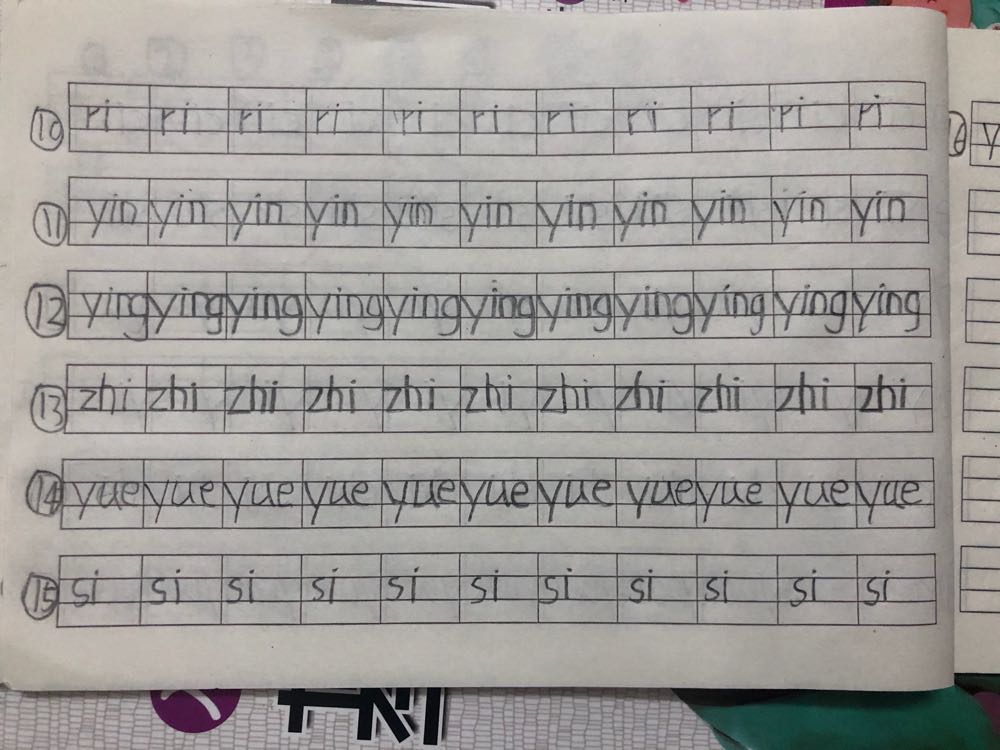 ⑩ ri ri ri ri ri ri ri ri ri ri ri
⑪ yin yin yin yin yin yin yin yin yin yin yin
⑫ ying ying ying ying ying ying ying ying ying ying ying
⑬ zhi zhi zhi zhi zhi zhi zhi zhi zhi zhi zhi
⑭ yue yue yue yue yue yue yue yue yue yue yue
⑮ si si si si si si si si si si si